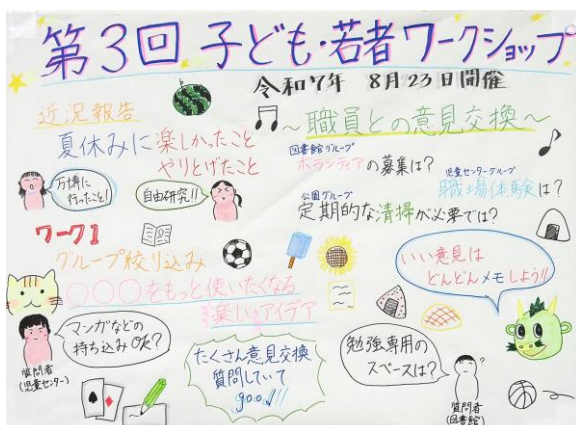 第3回 子ども・若者ワークショップ
令和7年 8月23日開催
近況報告
夏休みに楽しかったこと
やりとげたこと
万博に
行ったこと!
自由研究!!
〜職員との意見交換〜
図書館グループ
ボランティアの募集は?
児童センターグループ
職場体験は?
公園グループ
定期的な清掃が必要では?
ワーク1
グループ絞り込み
〇〇〇をもっと使いたくなる
楽しいアイデア
いい意見は
どんどんメモしよう!!
マンガなどの
持ち込みOK?
質問者
(児童センター)
たくさん意見交換
質問していて
good!!
勉強専用の
スペースは?
質問者
(図書館)